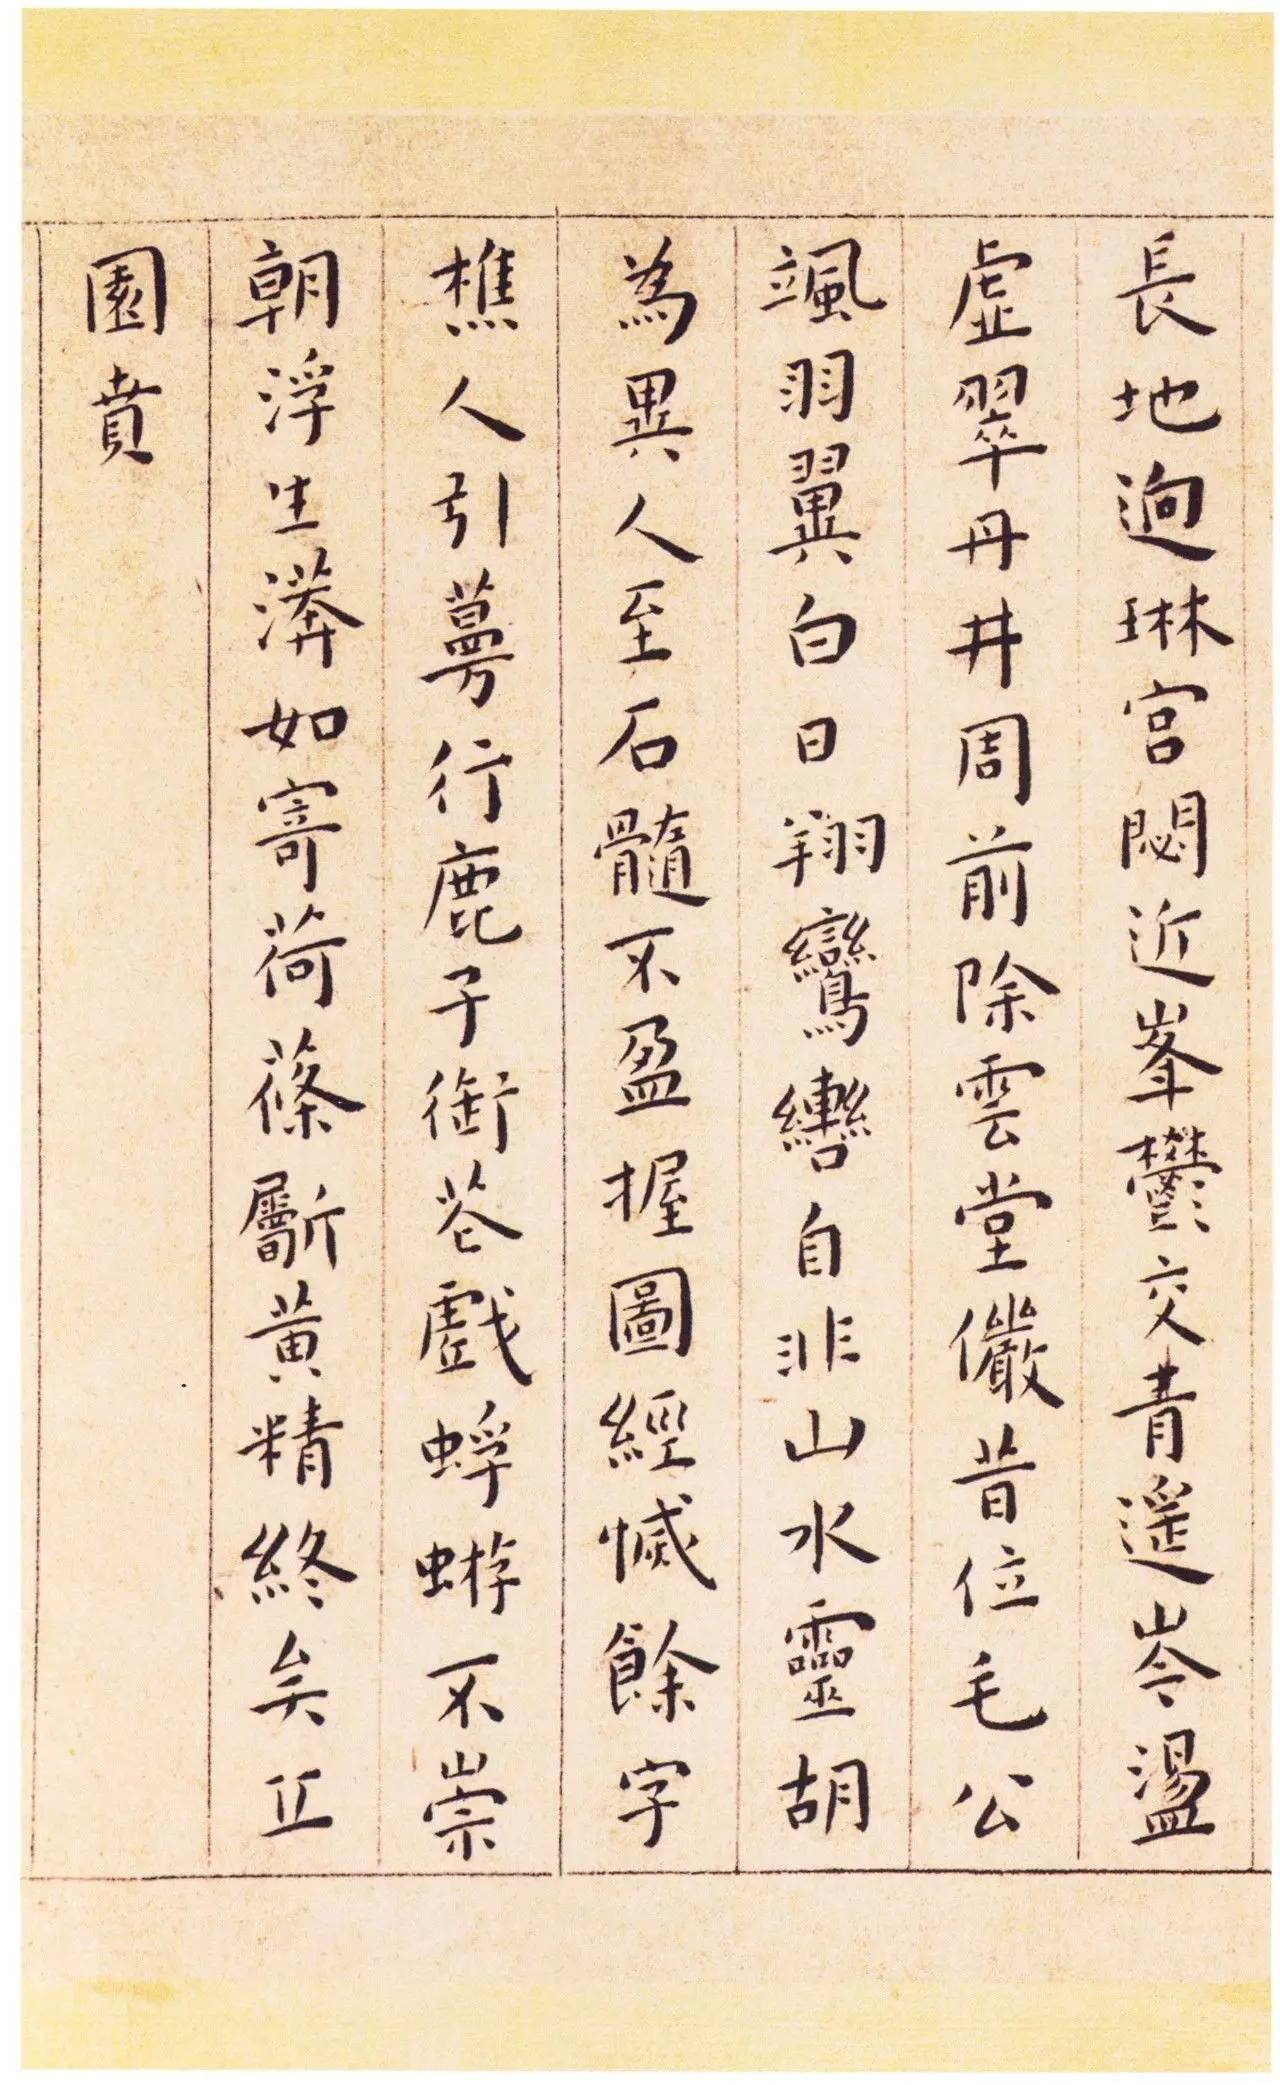 長地逈琳宮閟近峯鬱交青遥岑盪
虛翠丹井周前除雲堂儼昔位毛公
颯羽翼白日翔鸞轡自非山水靈胡
為異人至石髓不盈握圖經餘字
樵人引蔓行鹿子銜花戲蜉蝣不崇
朝浮生漭如寄荷蓧斸黃精終矣丘
園賁